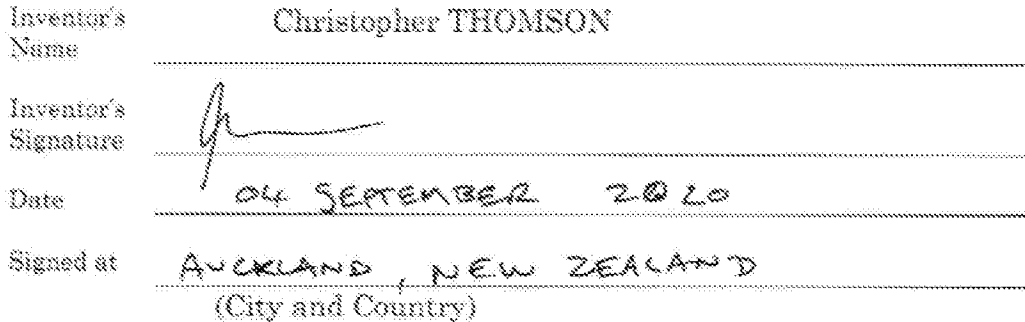 Inventor's Name Christopher THOMSON
Inventor's Signature
Date 04 SEPTEMBER 2020
Signed at AUCKLAND, NEW ZEALAND
(City and Country)